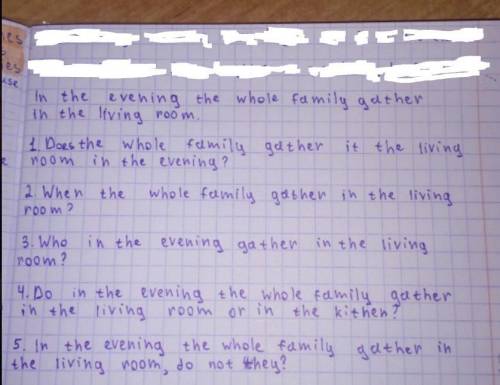 In the evening the whole family gather
in the living room.
1. Does the whole family gather it the living
room in the evening?
2. When the whole family gather in the living
room?
3. Who in the evening gather in the living
room?
4. Do in the evening the whole family gather
in the living room or in the kithen?
5. In the evening the whole family gather in
the living room, do not they?